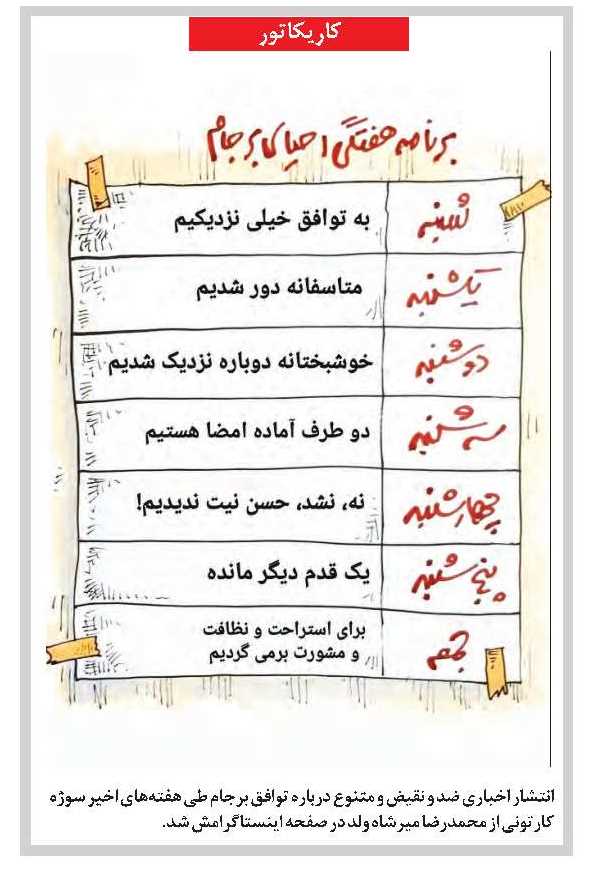 کاریکاتور
برنامه هفتگی احیای برجام
شنبه به توافق خیلی نزدیکیم
یکشنبه متاسفانه دور شدیم
دوشنبه خوشبختانه دوباره نزدیک شدیم
سه شنبه دو طرف آماده امضا هستیم
چهارشنبه نه، نشد، حسن نیت ندیدیم!
پنجشنبه یک قدم دیگر مانده
جمعه برای استراحت و نظافت
و مشورت برمی گردیم
انتشار اخباری ضد و نقیض و متنوع درباره توافق برجام طی هفته‌های اخیر سوژه
کارتونی از محمدرضا میرشاه ولد در صفحه اینستاگرامش شد.